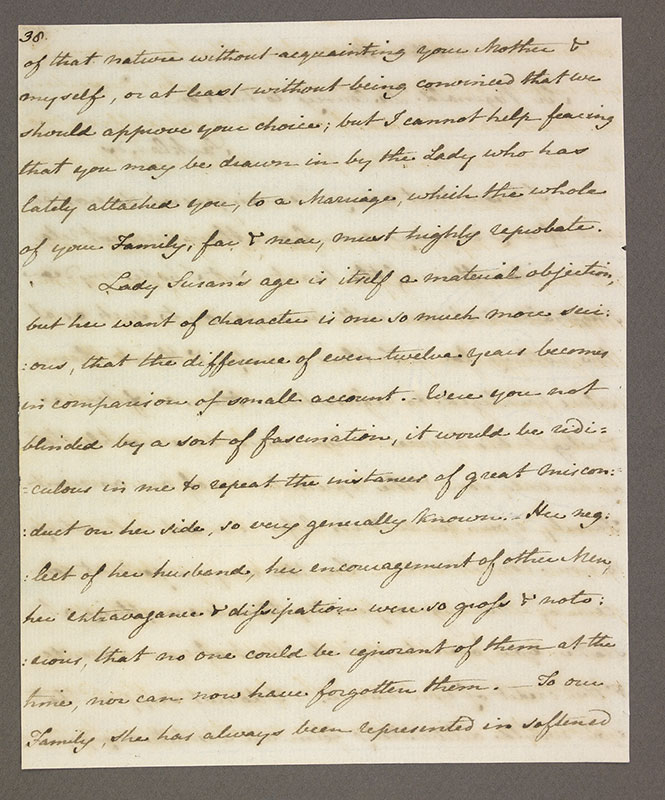 38.
of that nature without acquainting your Mother &
myself, or at least without being convinced that we
should approve your choice; but I cannot help fearing
that you may be drawn in by the Lady who has
lately attached you, to a Marriage, which the whole
of your Family, far & near, must highly reprobate.
Lady Susan's age is itself a material objection,
but her want of character is one so much more seri:
:ous, that the difference of even twelve years becomes
in comparison of small account. - Were you not
blinded by a sort of fascination, it would be ridi=
=culous in me to repeat the instances of great miscon:
:duct on her side, so very generally known. - Her neg:
:lect of her husband, her encouragement of other Men,
her extravagance & dissipation were so gross & noto:
:rious, that no one could be ignorant of them at the
time, nor can now have forgotten them. — To our
Family, she has always been represented in softened